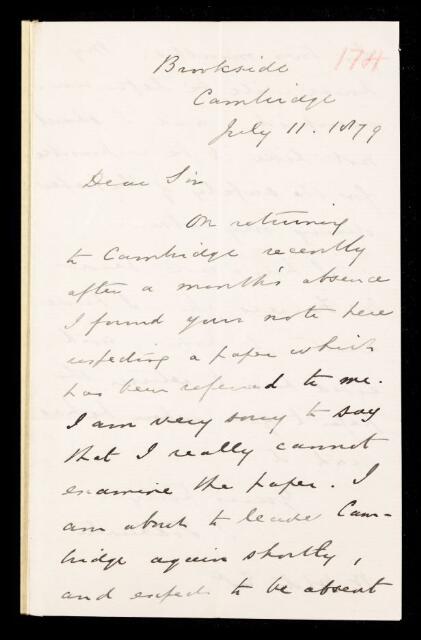 174
Brookside
Cambridge
July 11. 1879
Dear Sir
On returning
to Cambridge recently
after a month's absence
I found your note here
respecting a paper which
has been referred to me.
I am very sorry to say
that I really cannot
examine the paper. I
am about to leave Cam-
bridge again shortly,
and expect to be absent